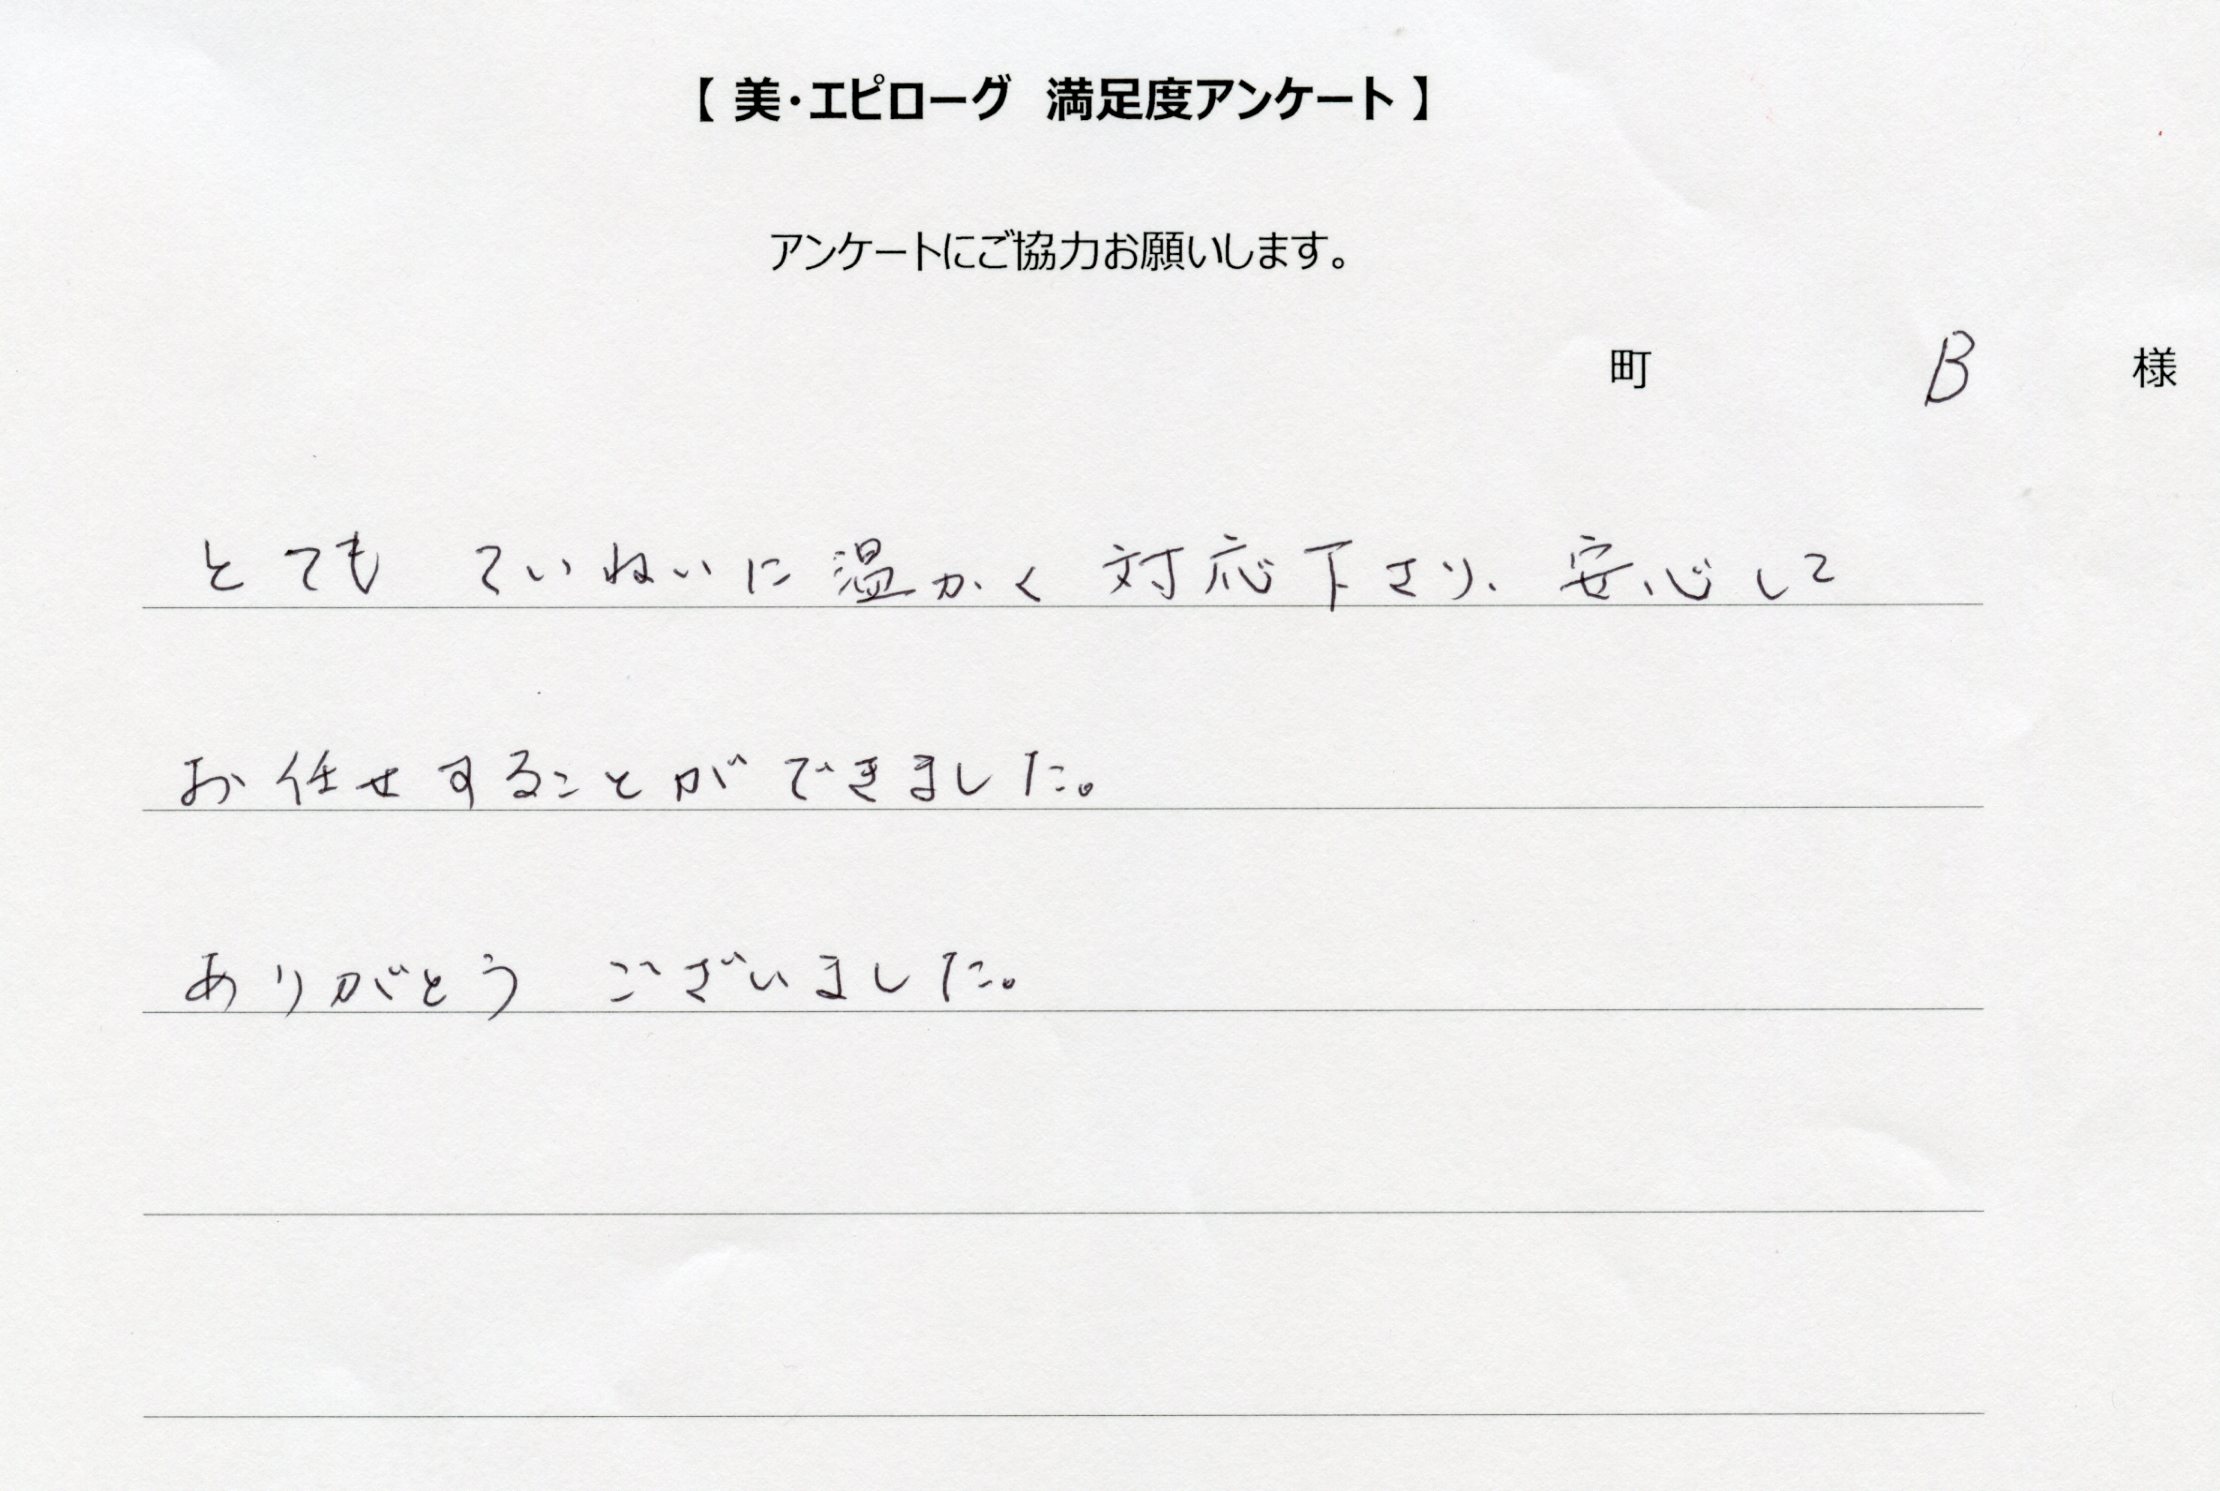 【 美・エピローグ　満足度アンケート 】
アンケートにご協力お願いします。
町　B　様
とても ていねいに温かく 対応下さり、安心して
お任せすることができました。
ありがとう ございました。